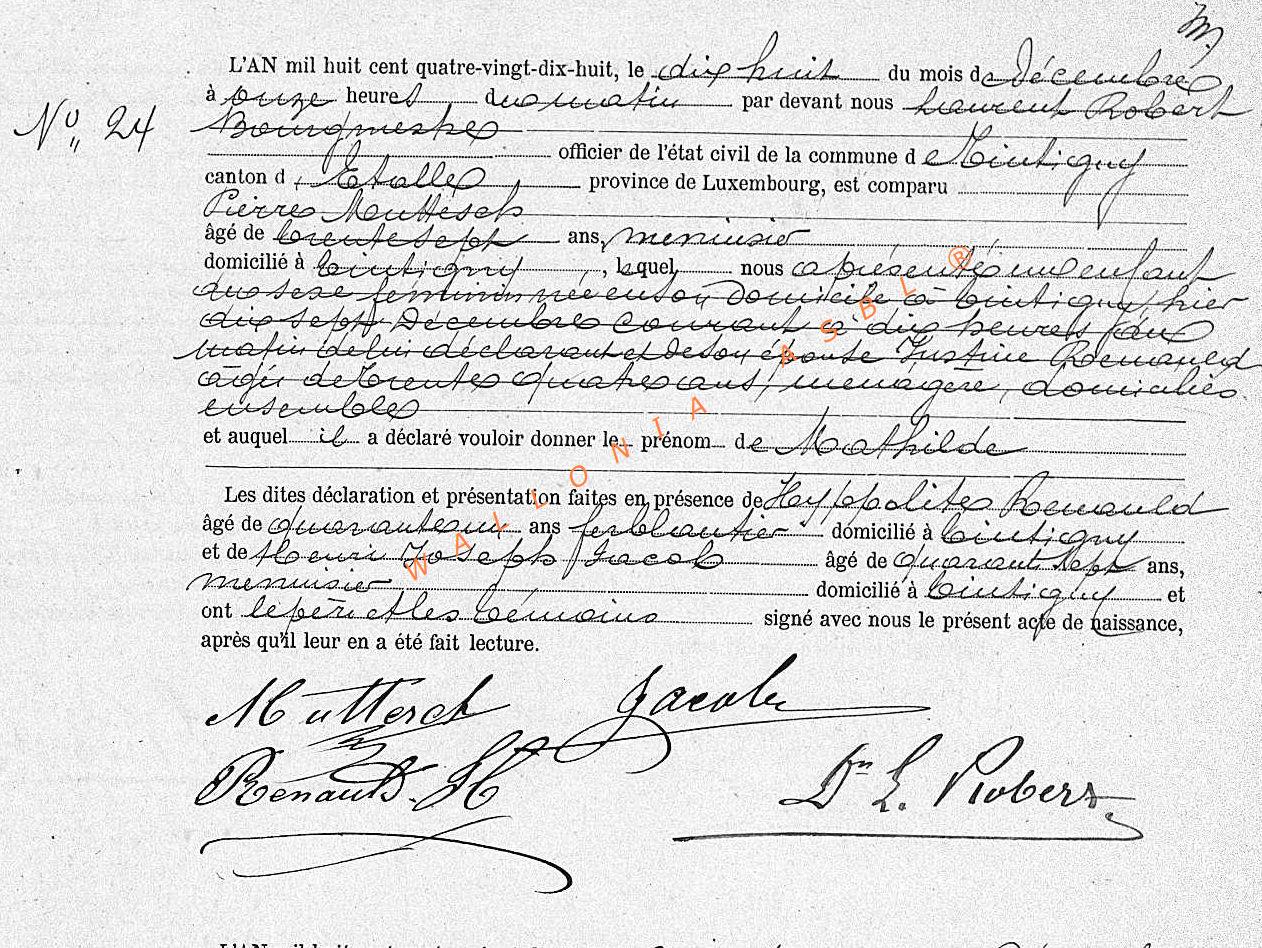 m.
L'AN mil huit cent quatre-vingt-dix-huit, le dix huit du mois de Décembre
à onze heures du matin par devant nous Laurent Robert
N° 24
Bourgmestre
officier de l'état civil de la commune de Tintigny
canton d'Etalle, province de Luxembourg, est comparu
Pierre Muttesch
âgé de trente sept ans, menuisier
domicilié à Tintigny, lequel nous a présenté un enfant
du sexe féminin née en son domicile à Tintigny, hier
dix sept Décembre courant à dix heures du
matin de lui déclarant et de son épouse Justine Renauld
âgée de trente quatre ans, ménagère, domiciliés
ensemble
et auquel il a déclaré vouloir donner le prénom de Mathilde
Les dites déclaration et présentation faites en présence de Hyppolite Renauld
âgé de quarante un ans ferblantier domicilié à Tintigny
et de Henri Joseph Jacob âgé de quarant sept ans,
menuisier domicilié à Tintigny et
ont le père et les témoins signé avec nous le présent acte de naissance,
après qu'il leur en a été fait lecture.
Mutterch Jacob
Renauld. H Dr L. Robert
WALLONIA ASBL ®